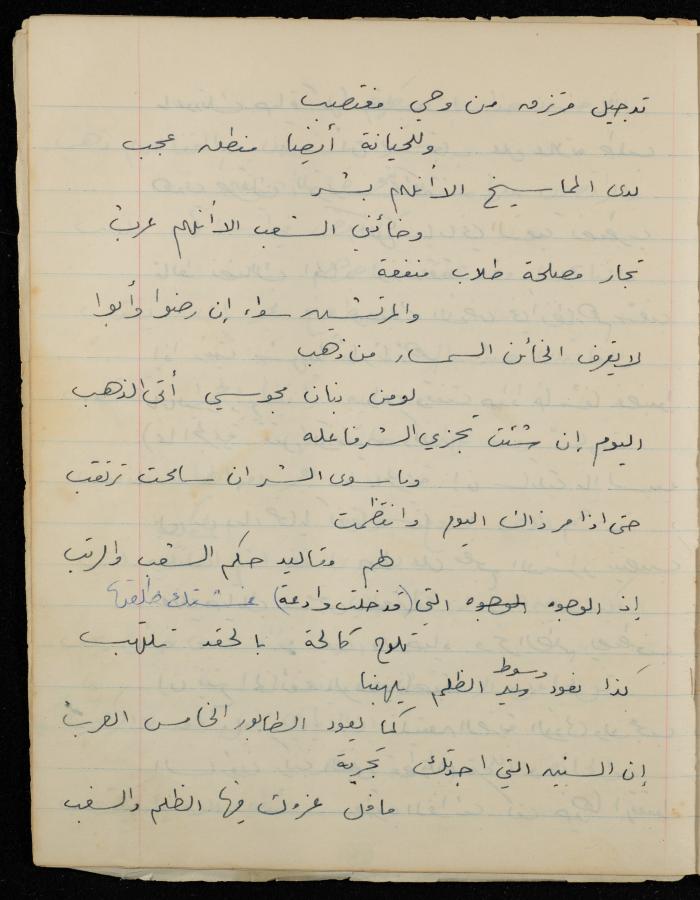 تدجيل مرتزق من وحي مغتصب
وللخيانة أيضا منطق عجب
لدى المماسيخ الا أنهم بشر
وخائني الشعب الا أنهم عرب
تجار مصلحة طلاب منفعة
والمرتشين سواء إن رضوا وأبوا
لا يقرف الخائن السمسار من ذهب
لو من بنان مجوسي أتى الذهب
اليوم إن شئت تجزي الشر فاعله
وما سوى الشر ان سامحت ترتقب
حتى اذا مر ذاك اليوم وانتظمت
لهم مقاليد حكم الشعب والرتب
إذ الوجوه الوجوه التي (قد خلت وادعة)
تلوح كالحة بالحقد تلتهب
كذا يعود وسوط الظلم يلهبنا
كما يعود الطابور الخامس العرب
إن السنين التي اجدتك تجربة
ما فل عزمك فيها الظلم والسغب